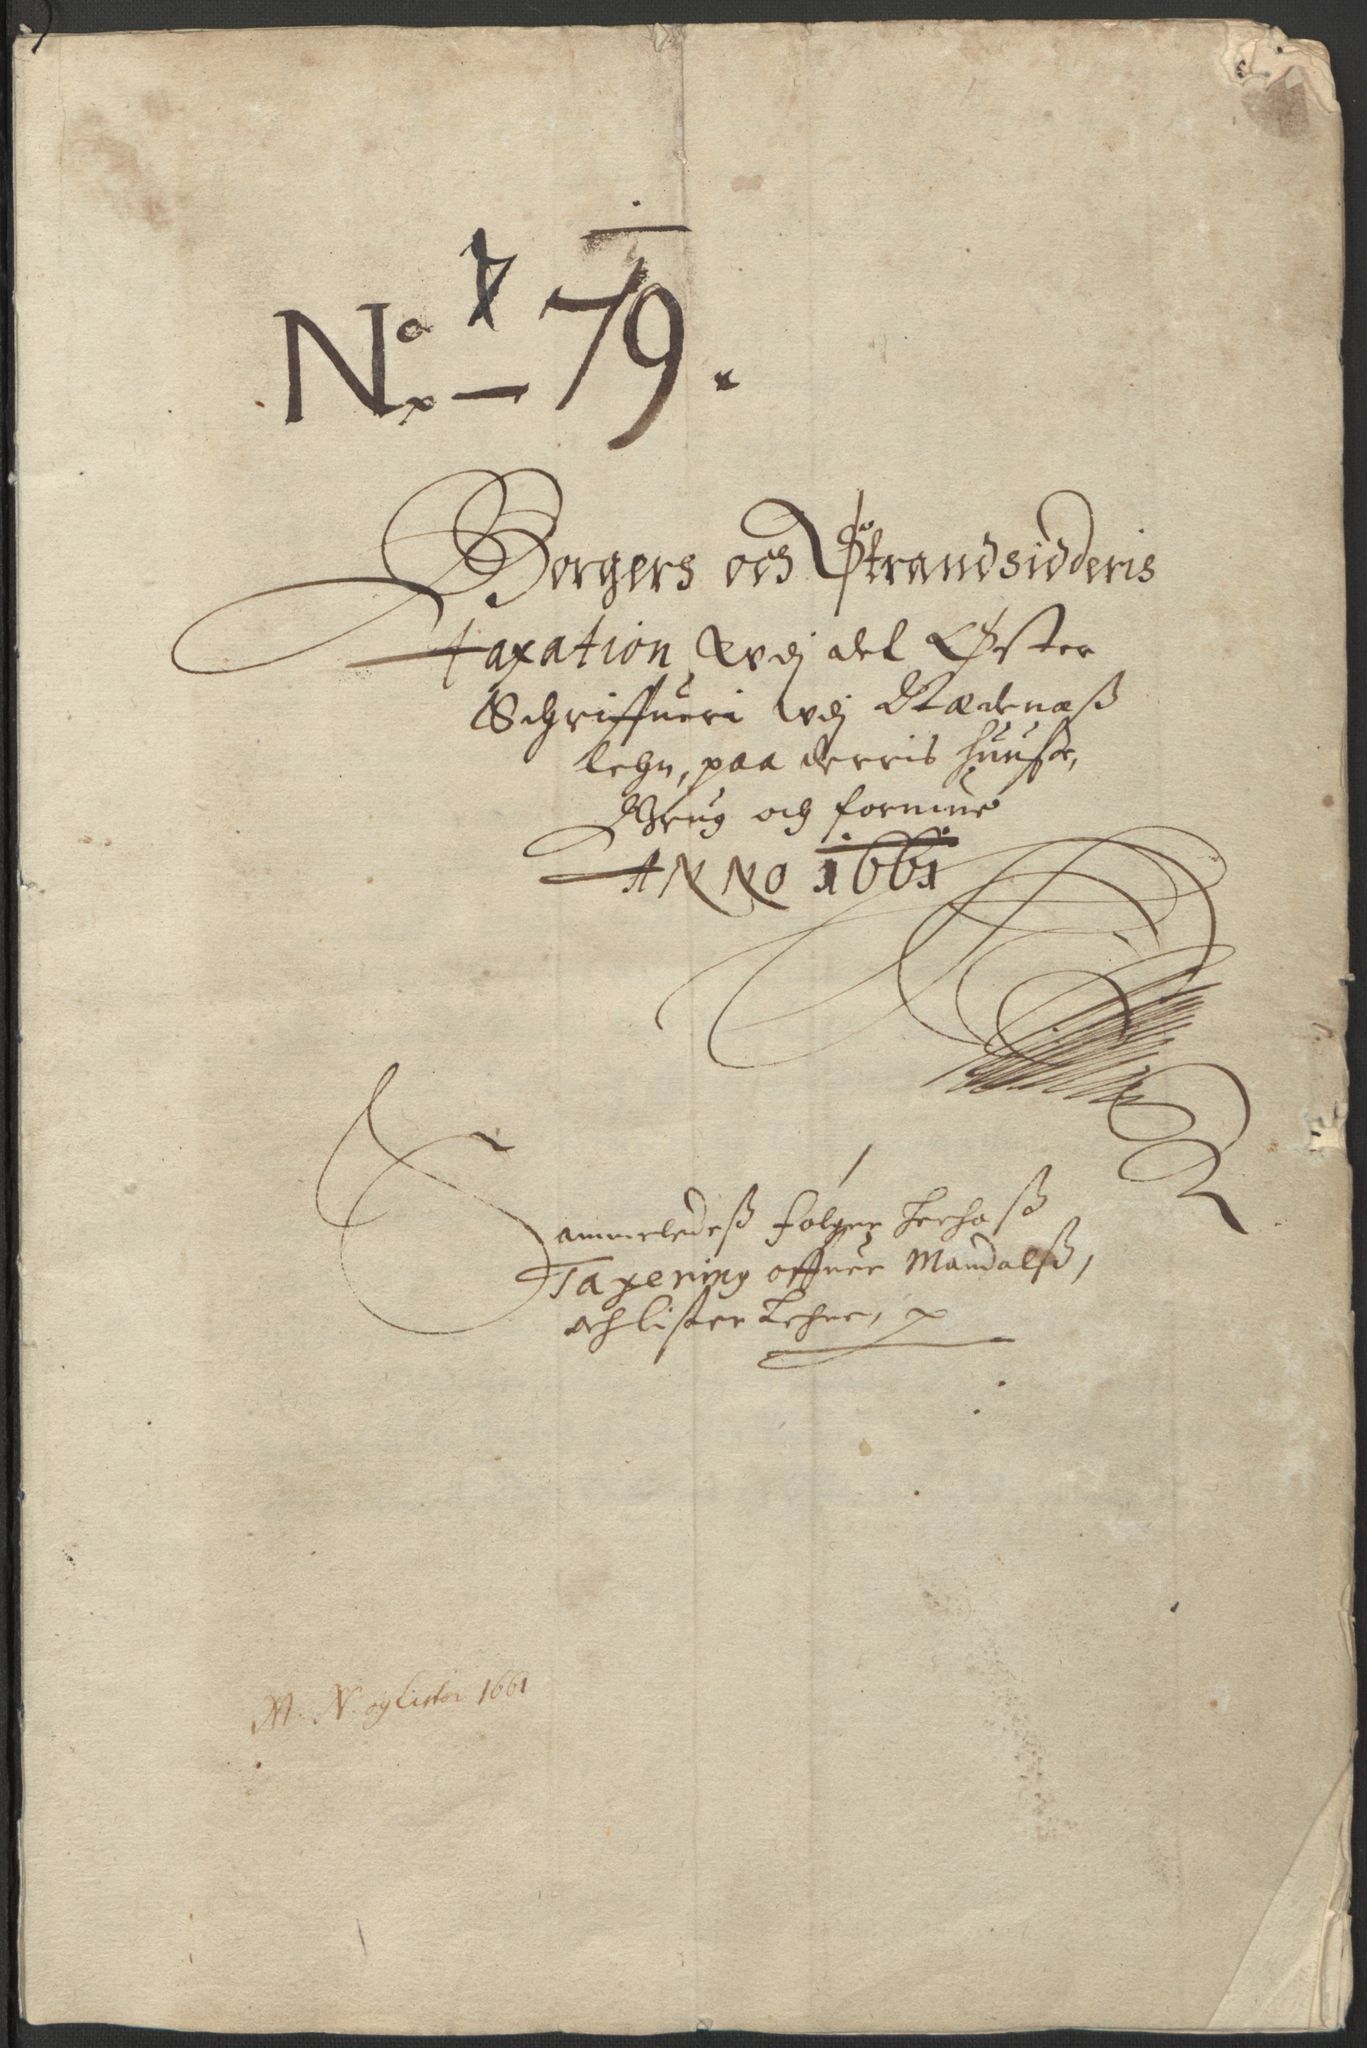 No 79.
Borgers och Strandsidderis
taxation udj det Øster
Schriffueri udj Nædenæß
lehn, paa derris Huuse,
Brug och formue
ANNO 1661
Sammeledeß følger herhoß
Taxering offuer Mandalß,
och lister Lehne,
M. N. og Lister 1661